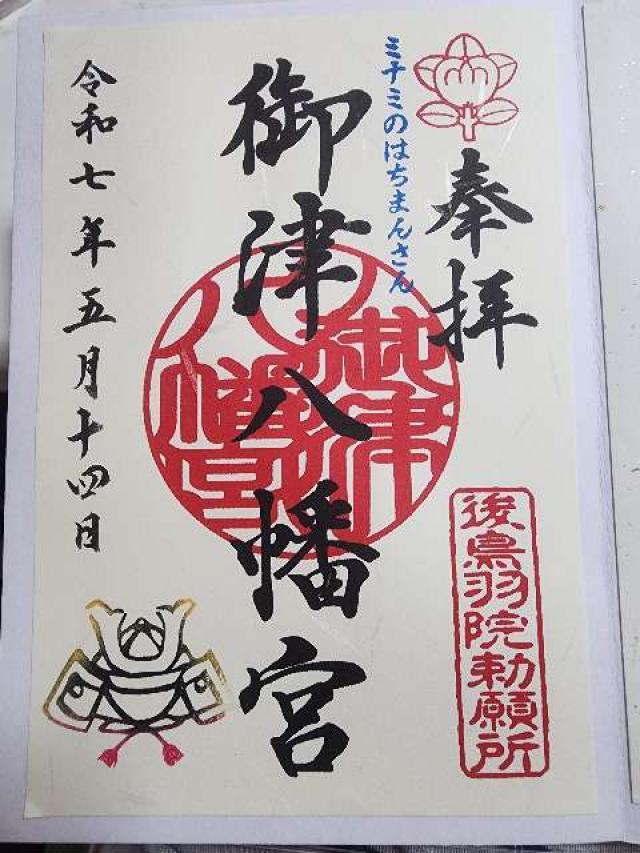 奉拝
ミナミのはちまんさん
御津八幡宮
御津八幡宮
後鳥羽院勅願所
令和七年五月十四日